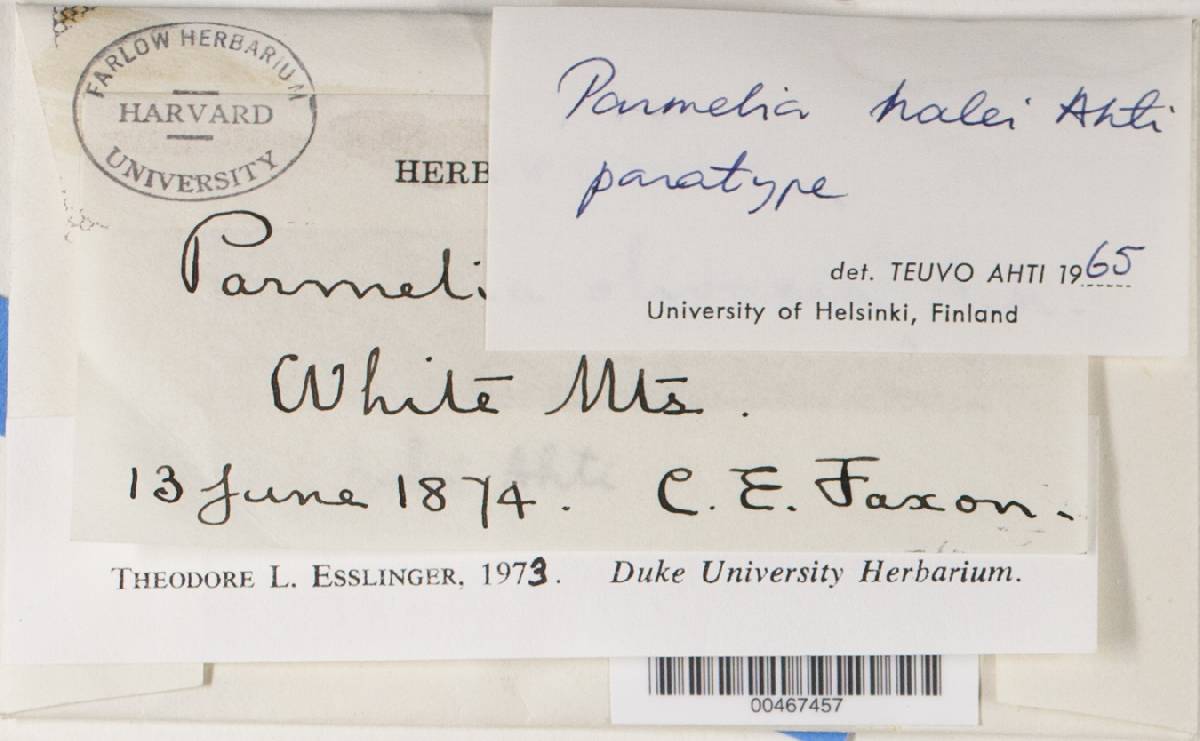 FARLOW HERBARIUM
HARVARD
UNIVERSITY
HERB
Parmeli
White Mts.
13 June 1874. C. E. Faxon.
Parmelia halei Ahti
paratype
det. TEUVO AHTI 1965
University of Helsinki, Finland
THEODORE L. ESSLINGER, 1973. Duke University Herbarium.
00467457